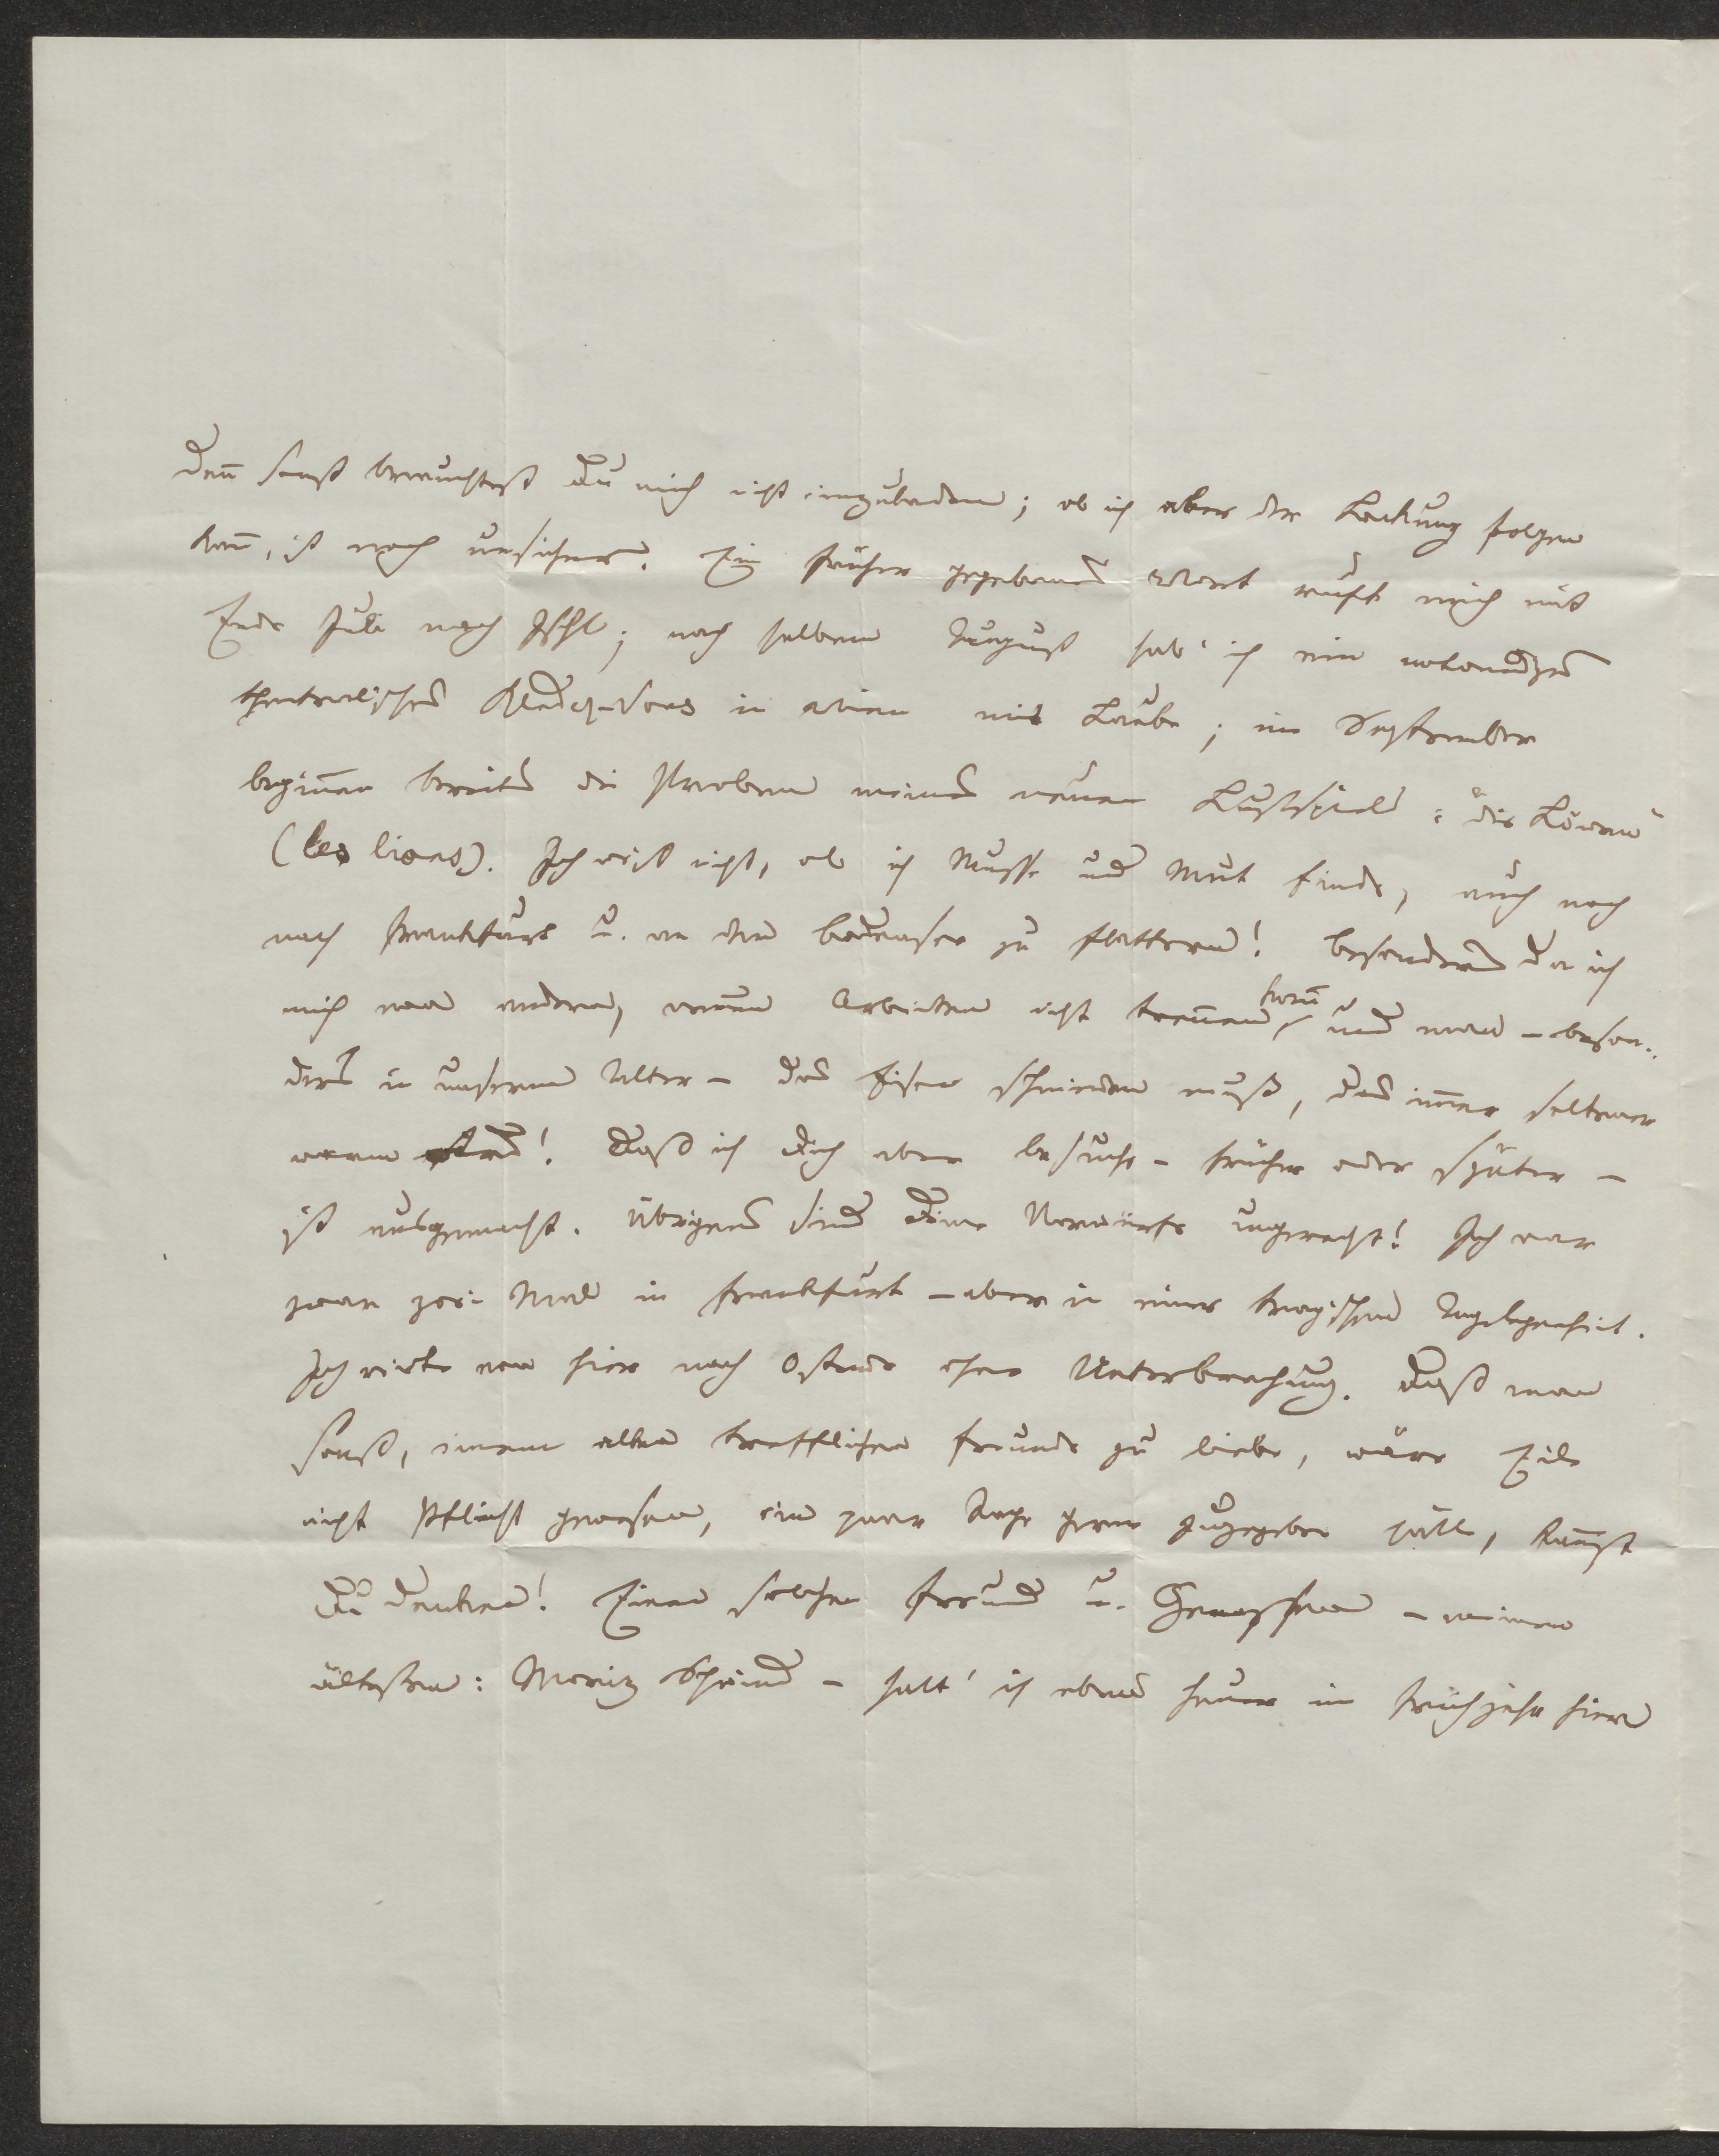 Dan̄ sonst brauchtest Du mich nicht einzuladen; ob ich aber der Lockung folgen
kan̄, ist noch unsicher. Ein früher gegebenes Wort ruft mich mit
Ende Juli nach Ischl; nach halbem August hab' ich ein nothwendges
theatralisches Rendez-vous in Wien mit Laube; im September
begin̄en bereits die Proben meines neuen Lustspiels: „die Löwen“
(les lions). Ich weiß nicht, ob ich Musse und Mut finde, auch noch
nach Frankfurt u. an den Bodensee zu flattern! Besonders da ich
mich von andern, neuen Arbeiten nicht tren̄en kan̄ und man – beson-
ders in unserem Alter – das Eisen schmieden muß, das im̄er seltener
warm! Daß ich Dich aber besuche – früher oder später –
ist ausgemacht. Übrigens sind Deine Vorwürfe ungerecht! Ich war
zwar zwei Mal in Frankfurt – aber in einer tragischen Angelegenheit.
Ich reiste von hier nach Ostende ohne Unterbrechung. Daß man
sonst, einem alten trefflichen Freunde zu liebe, wäre Eile
nicht Pflicht gewesen, ein paar Tage gerne zugegeben hätte, kan̄st
Du denken! Einen solchen Freund u. Genossen – meinen
ältesten: Moritz Schwind – hatt' ich eben heuer im Frühjahr hier